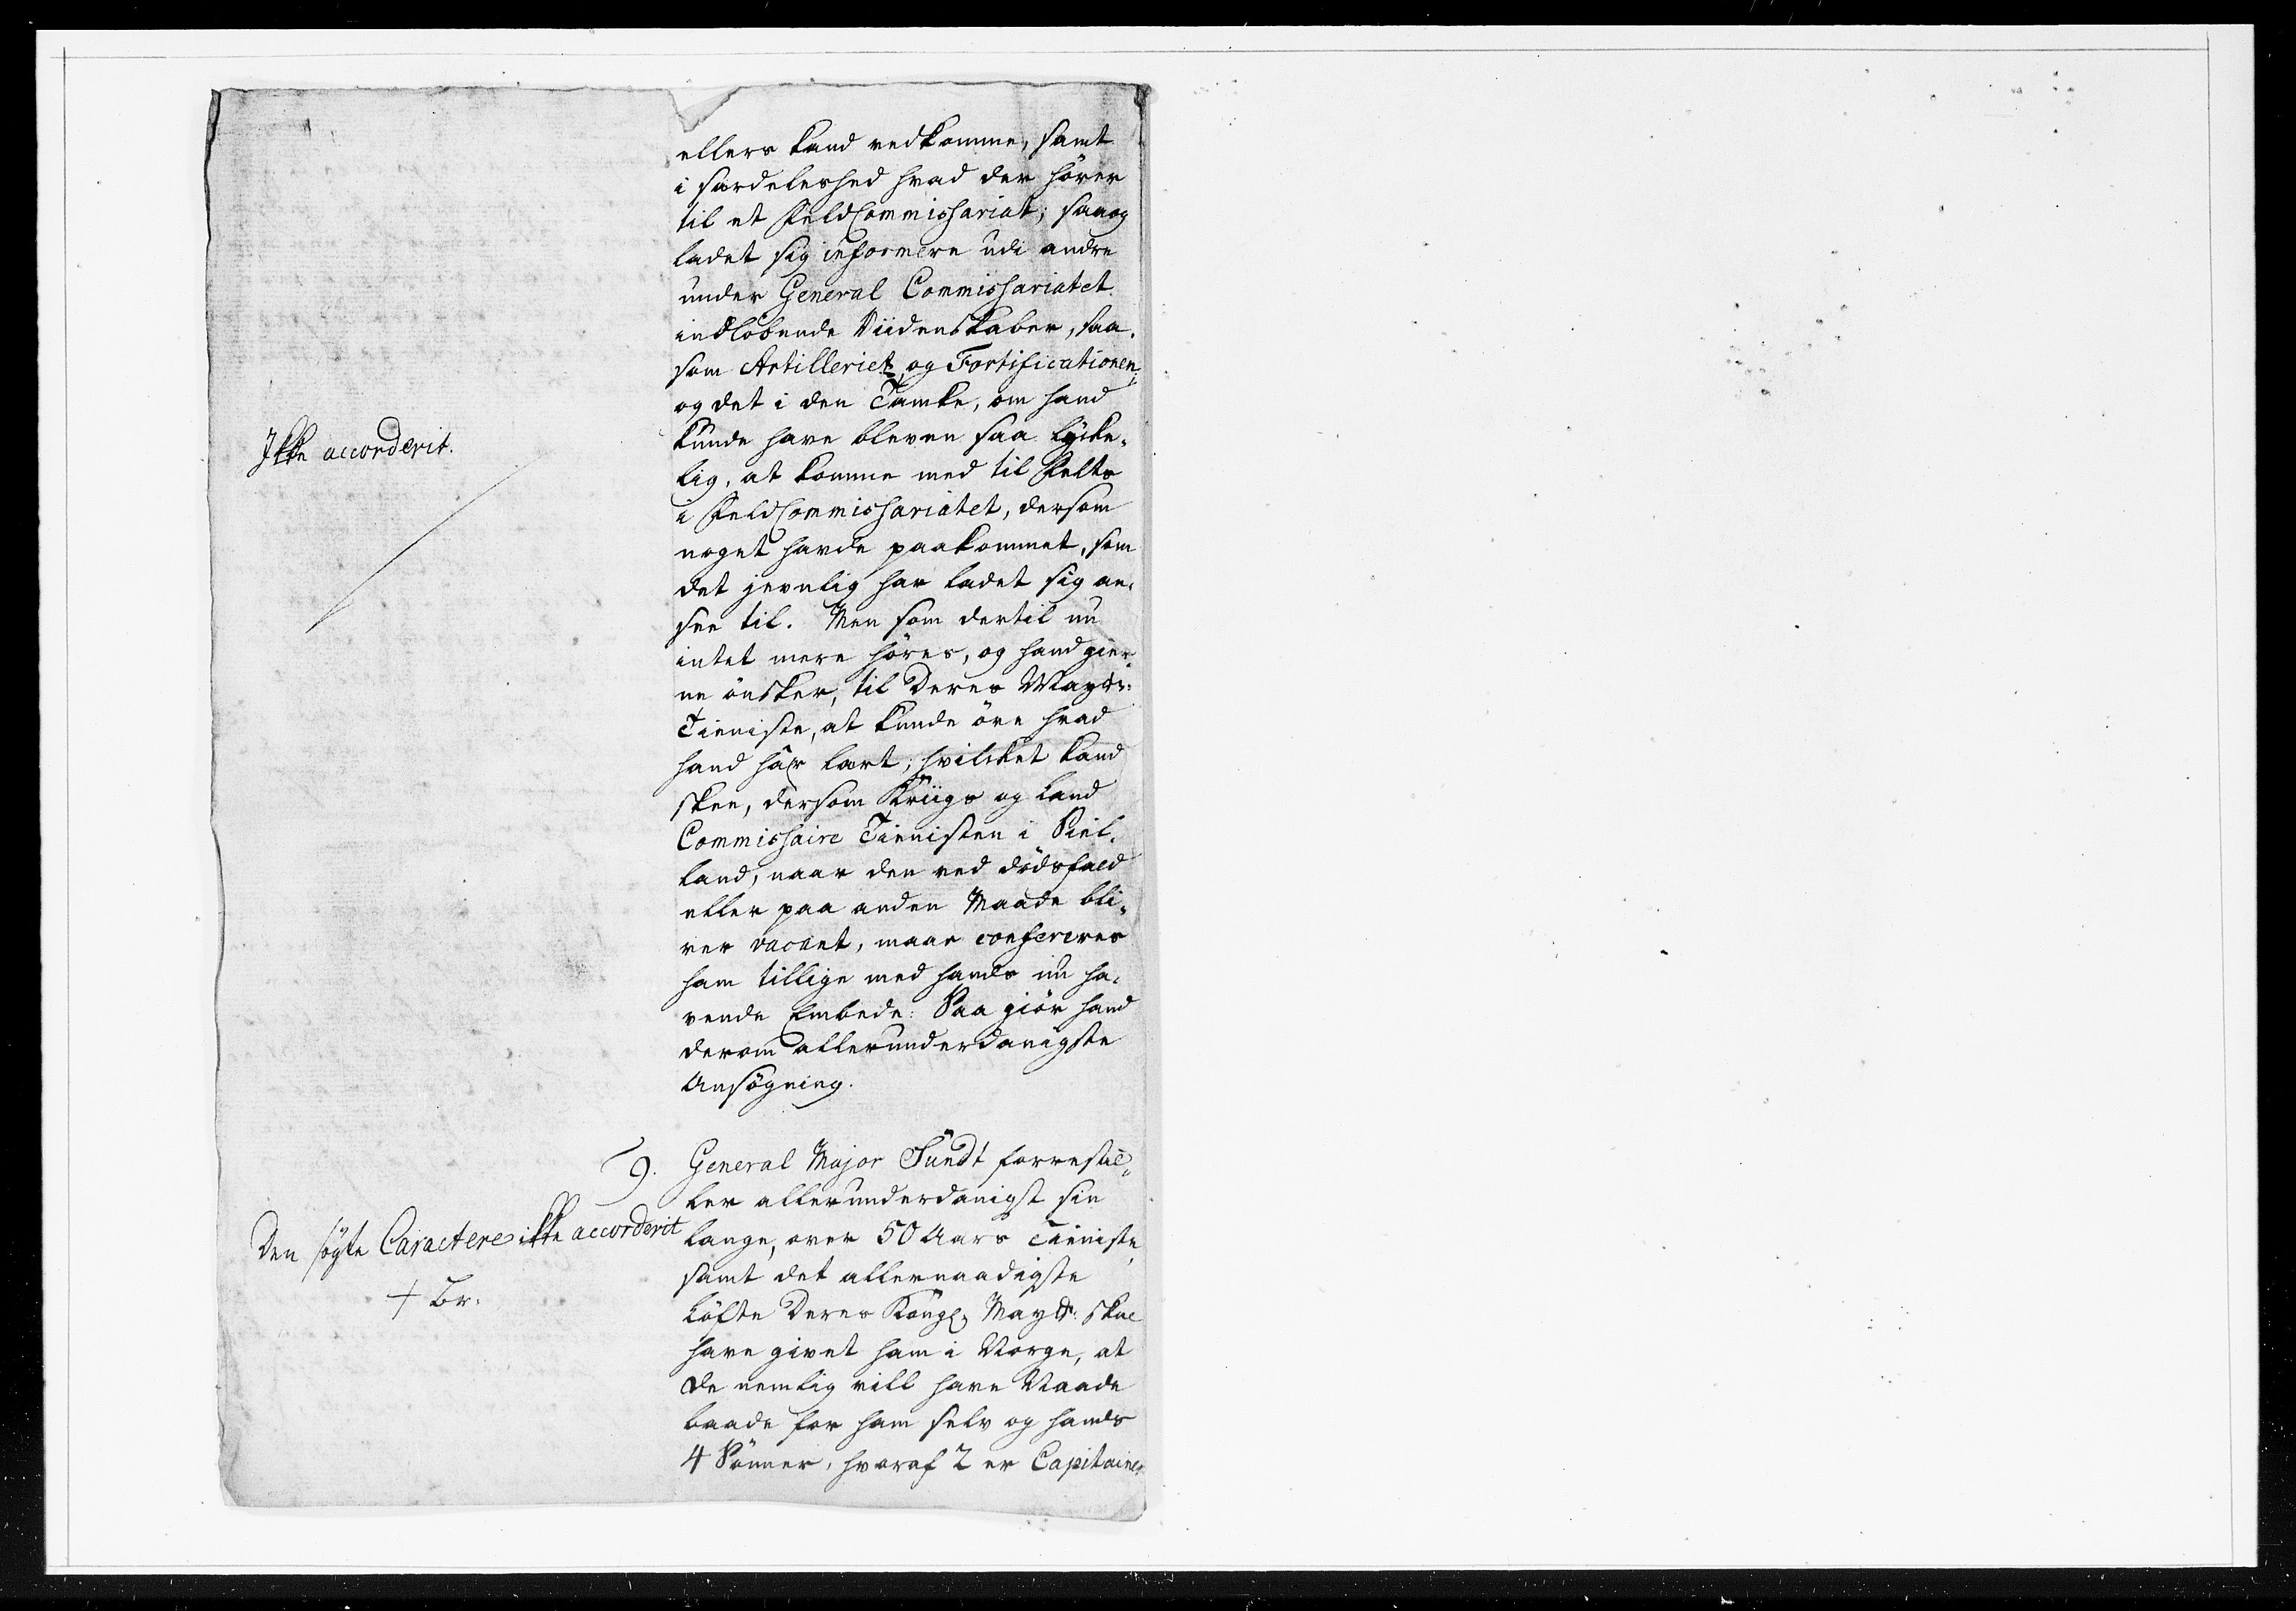 ellers kand vedkomme, samt
i særdeleshed hvad der hører
til et FeldCommissariat; saa og
ladet sig informere udi andre
under General Commissariatet
indløbende Viidenskaber, saa-
som Artilleriet, og Fortificationen;
og det i den Tanke, om hand
kunde have bleven saa lycke-
lig, at komme med til Felts
i FeldCommissariatet, dersom
noget havde paakommet, som
det jevnlig har ladet sig an-
see til. Men som dertil nu
intet mere høres, og hand gier-
ne ønsker, til Deres Mayts:
Tieniste, at kunde øve hvad
hand har lært; hvilcket kand
skee, dersom Kriigs og Land
Commissaire Tienisten i Siel-
land, naar den ved dødsfald
eller paa anden Maade bli-
ver vacant, maae confereres
ham tillige med hands nu ha-
vende Embede: Saa giør hand
derom allerunderdanigste
Ansøgning.
Ikke accorderit.
9. General Major Sundt forrestil-
ler allerunderdanigst sin
lange, over 50 Aars Tieniste,
samt det allernaadigste
Løfte Deres Kongl. Mayt: skal
have givet ham i Norge, at
De nemlig vill have Naade
baade for ham selv og hands
4 Sønner, hvoraf 2 er Capitainer
Den søgte Caractere ikke accorderit
+ Br.